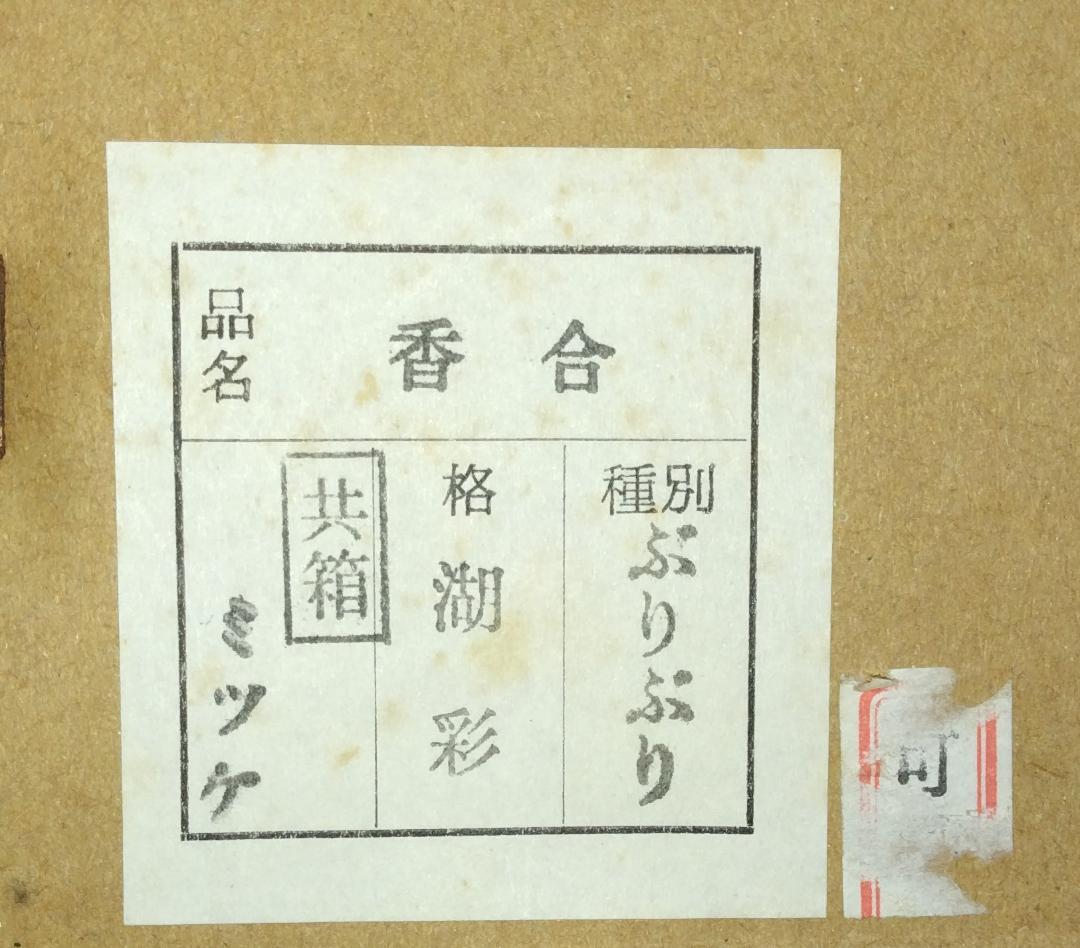 品名 香合
種別 ぶりぶり
格 湖彩
共箱
ミツケ
可